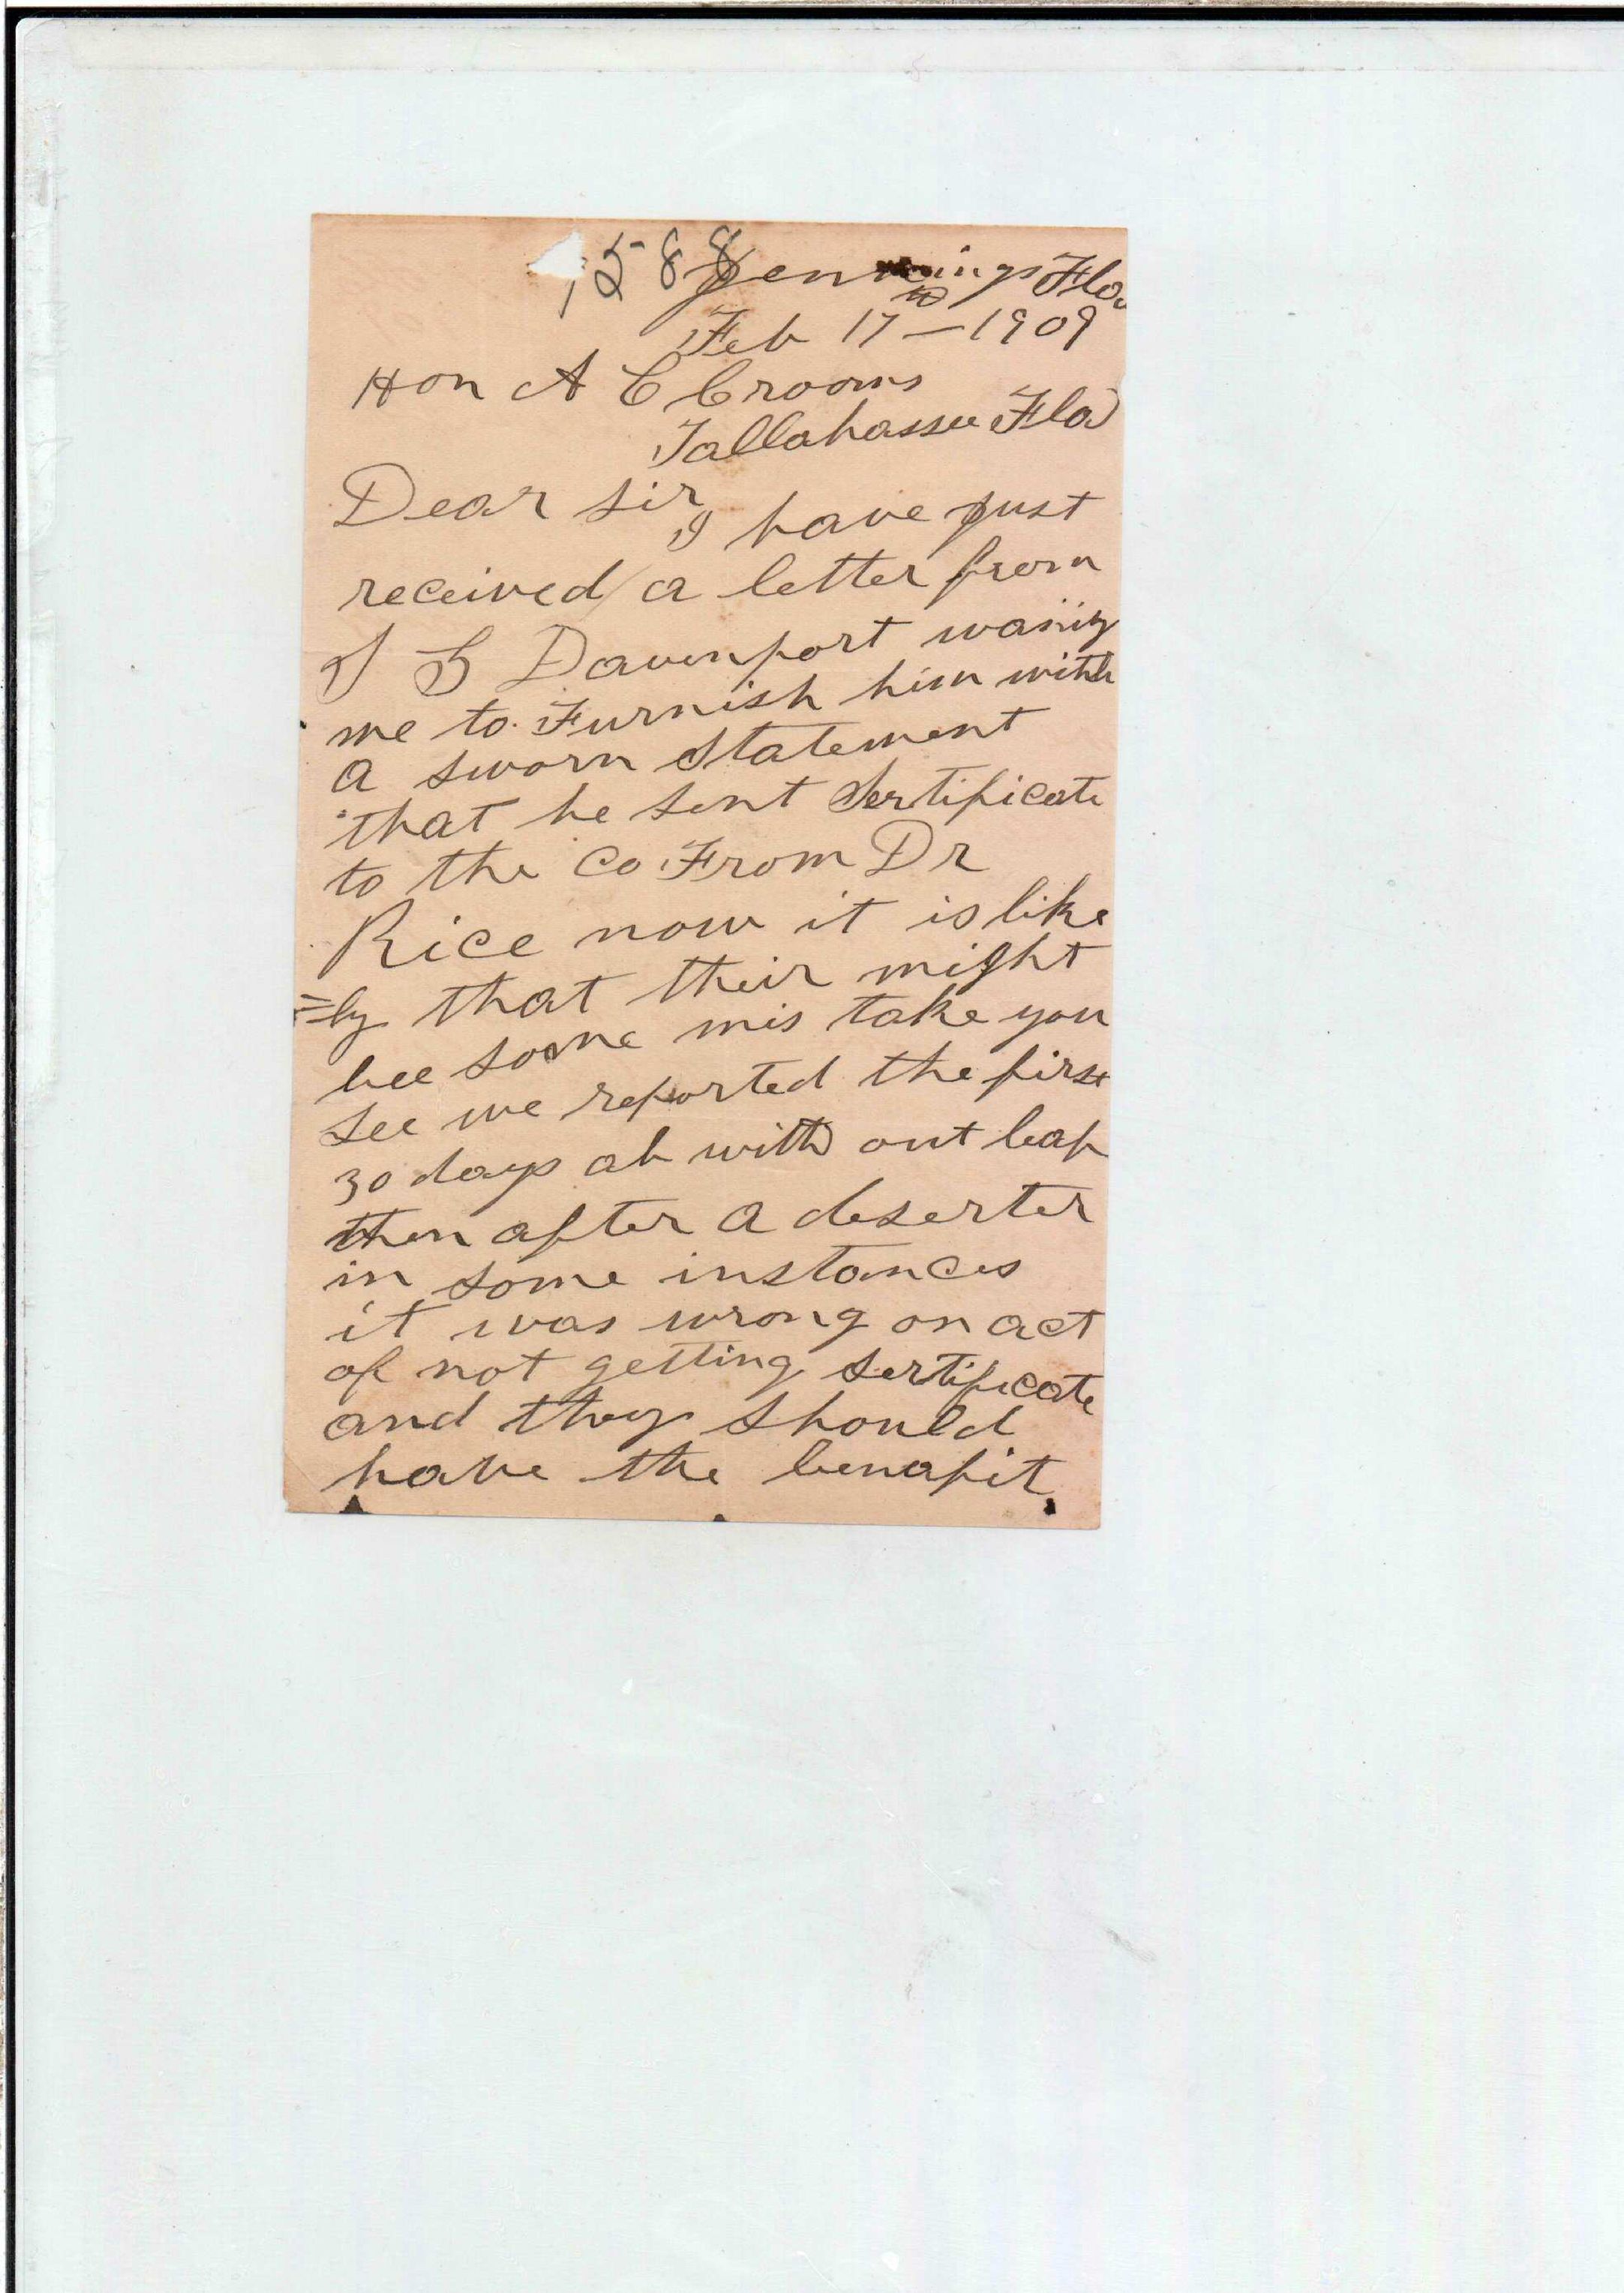 1588
Jennings Fla
Feb 17th — 1909
Hon A C Crooms
Tallahassee Fla
Dear sir
I have just
received a letter from
Davenport
me to Furnish him with
a sworn Statement
that he sent Sertificate
to the Co From Dr
Rice now it is like
=ly that their might
bee some mis take you
see we reported the first
30 days ab with out leaf
then after a deserter
in some instances
it was wrong on act
of not getting sertificate
and they should
have the benafit.